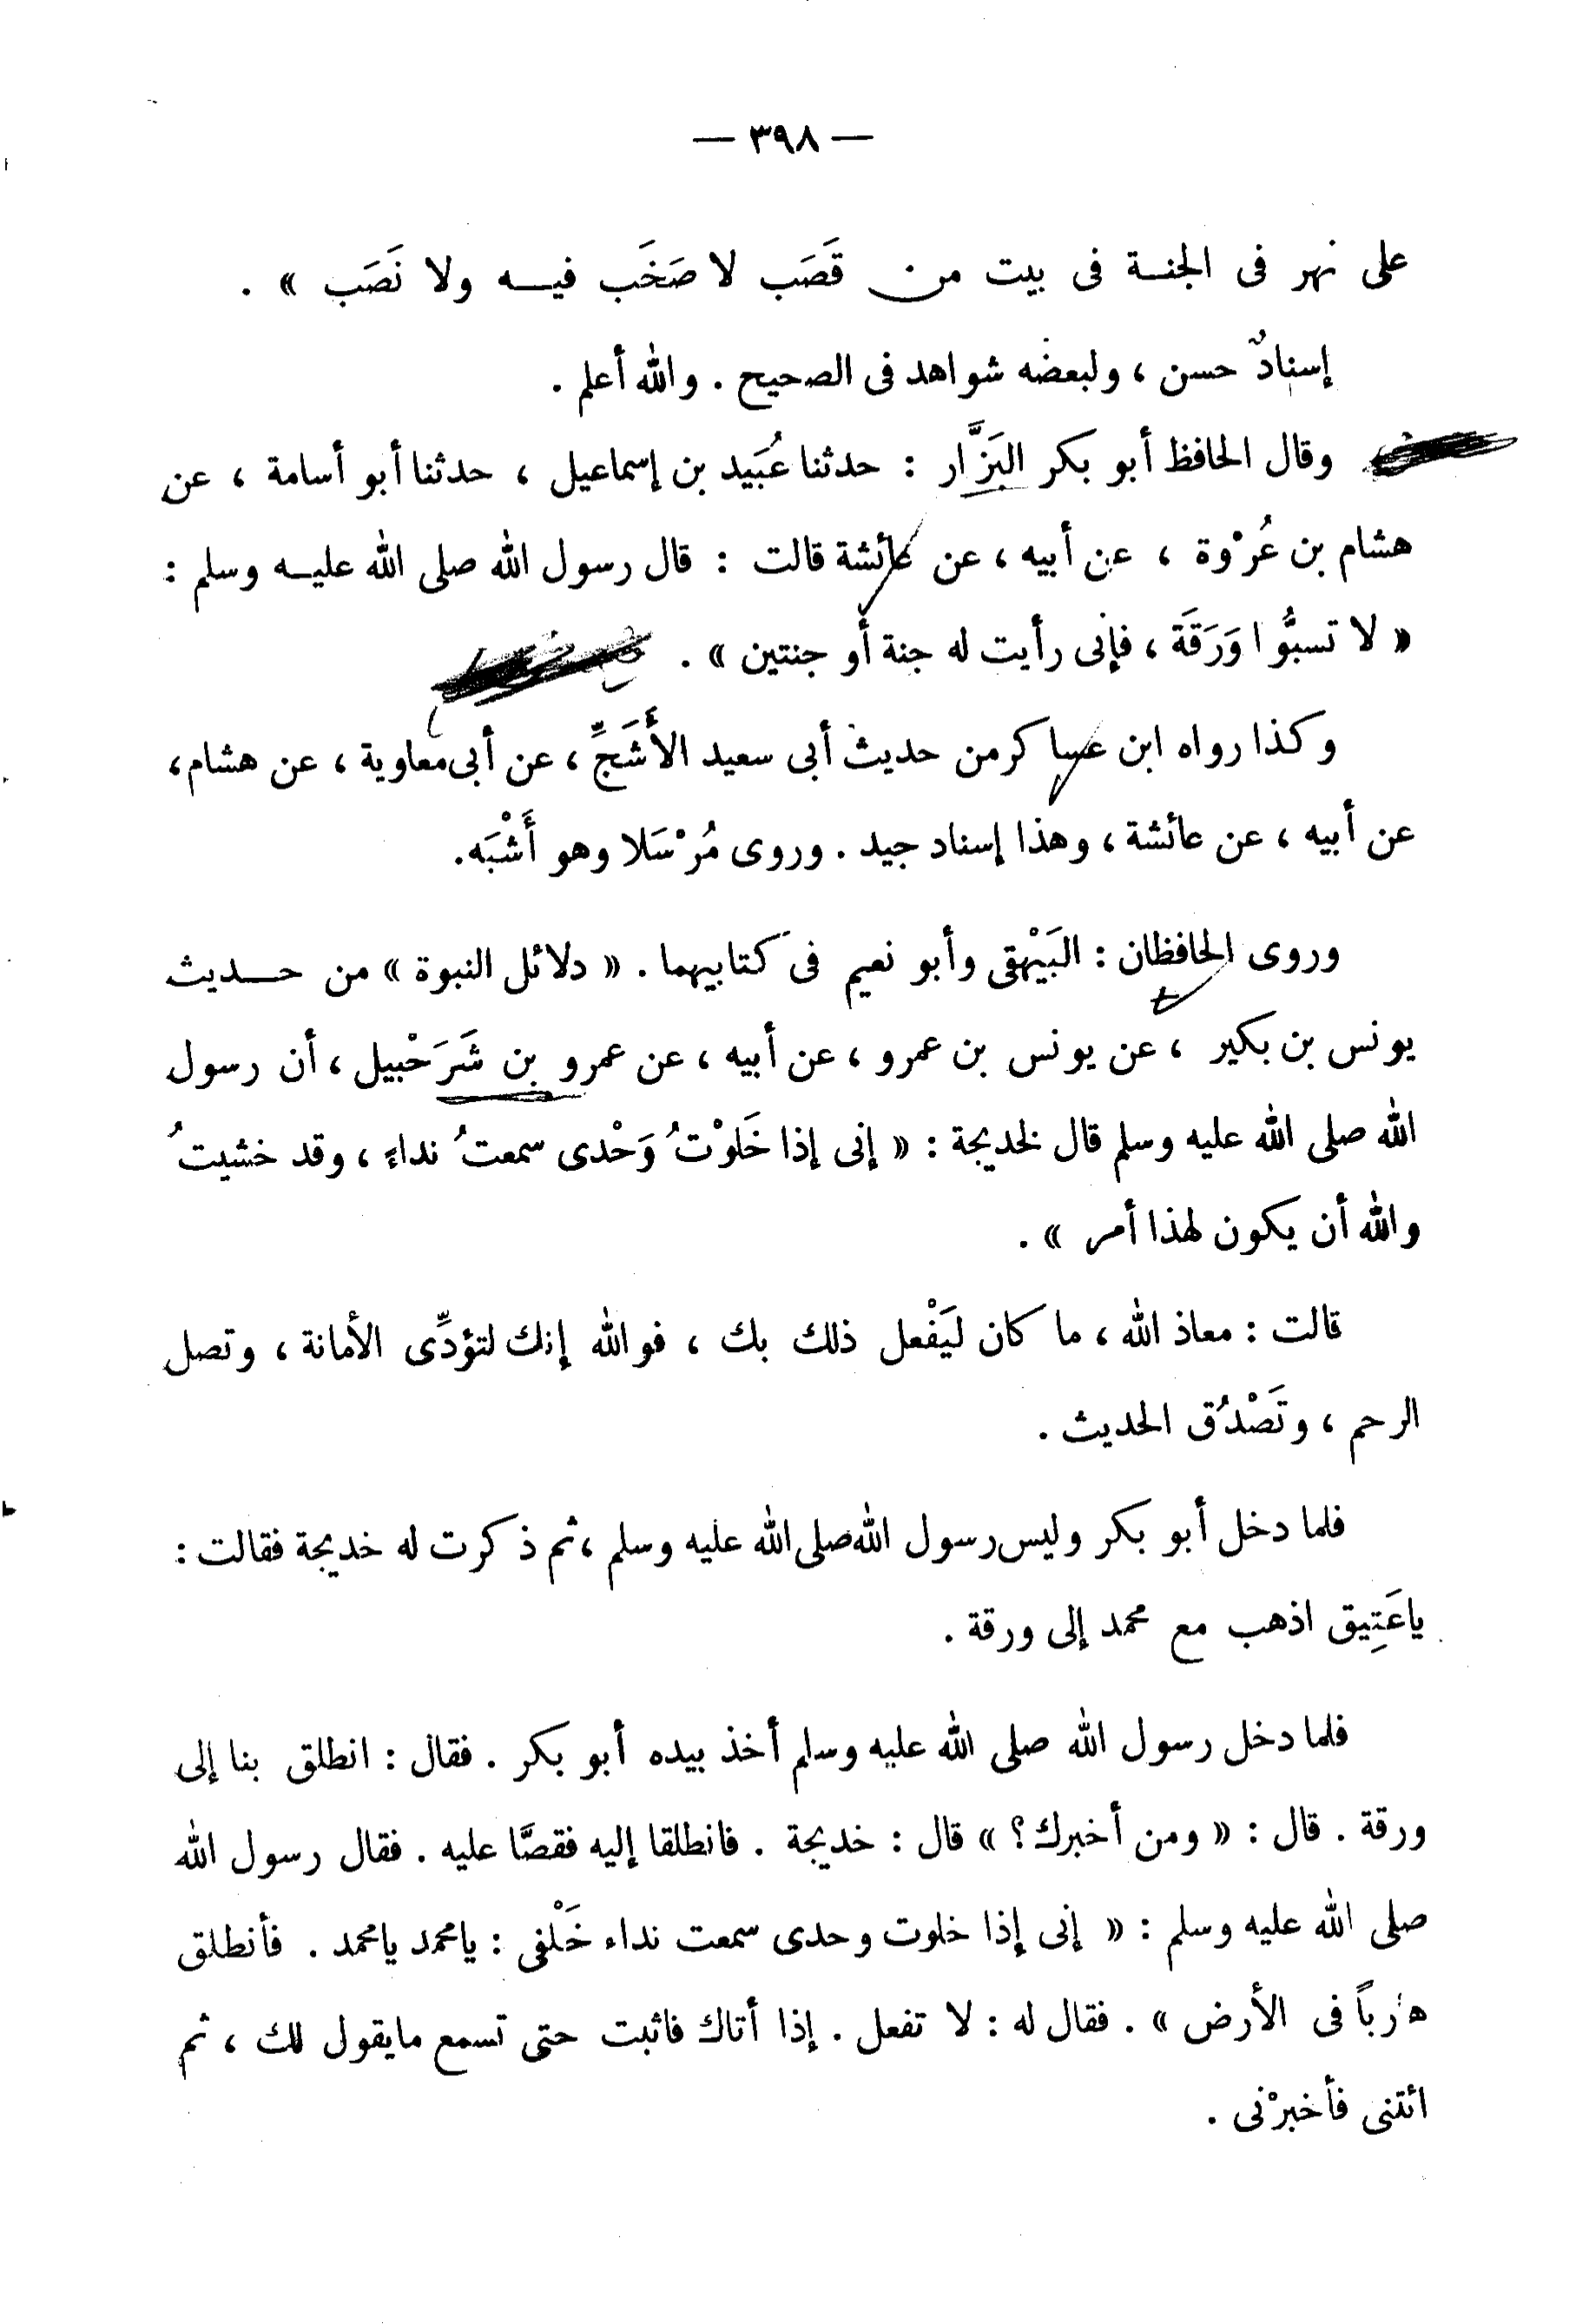 — ٣٩٨ —
على نهر فى الجنـــة فى بيت من قَصَب لا صَخَب فيـــه ولا نَصَب » .
إسنادٌ حسن ، ولبعضه شواهد فى الصحيح . والله أعلم .
وقال الحافظ أبو بكر البَزَّار : حدثنا عُبَيد بن إسماعيل ، حدثنا أبو أسامة ، عن
هشام بن عُرْوة ، عن أبيه ، عن عائشة قالت : قال رسول الله صلى الله عليـــه وسلم :
« لا تسبُّوا وَرَقَة ، فإنى رأيت له جنة أو جنتين » .
وكذا رواه ابن عساكر من حديث أبى سعيد الأَشَجِّ ، عن أبى معاوية ، عن هشام،
عن أبيه ، عن عائشة ، وهذا إسناد جيد . وروى مُرْسَلا وهو أَشْبَه.
وروى الحافظان : البَيْهقى وأبو نعيم فى كتابيهما . « دلائل النبوة » من حـــديث
يونس بن بكير ، عن يونس بن عمرو ، عن أبيه ، عن عمرو بن شَرَحْبيل ، أن رسول
الله صلى الله عليه وسلم قال لخديجة : « إنى إذا خَلَوْتُ وَحْدى سمعتُ نداءً ، وقد خشيتُ
والله أن يكون لهذا أمر » .
قالت : معاذ الله ، ما كان ليَفْعل ذلك بك ، فوالله إنك لتؤدِّى الأمانة ، وتصل
الرحم ، وتَصْدُق الحديث .
فلما دخل أبو بكر وليس رسول الله صلى الله عليه وسلم ، ثم ذكرت له خديجة فقالت :
ياعَتِيق اذهب مع محمد إلى ورقة .
فلما دخل رسول الله صلى الله عليه وسلم أخذ بيده أبو بكر . فقال : انطلق بنا إلى
ورقة . قال : « ومن أخبرك؟ » قال : خديجة . فانطلقا إليه فقصَّا عليه . فقال رسول الله
صلى الله عليه وسلم : « إنى إذا خلوت وحدى سمعت نداء خَلْفى : يامحمد يامحمد . فأنطلق
هارباً فى الأرض » . فقال له : لا تفعل . إذا أتاك فاثبت حتى تسمع مايقول لك ، ثم
ائتنى فأخبرْنى .